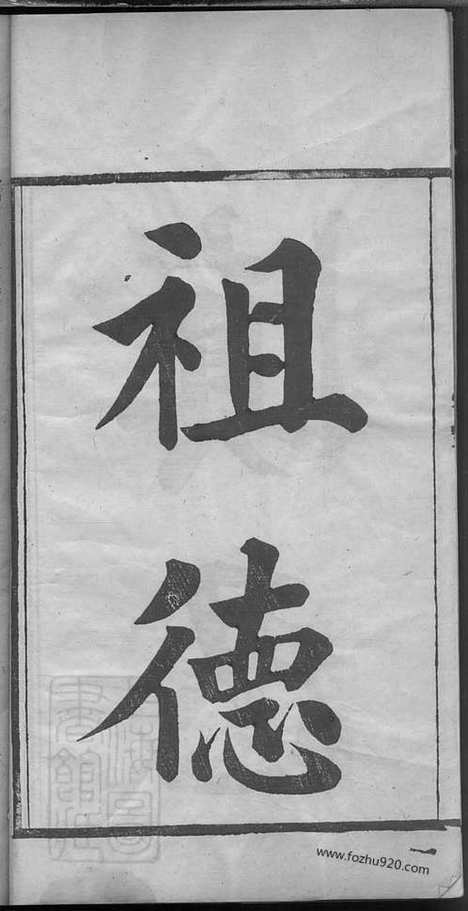 祖德
一
www.fozhu920.com